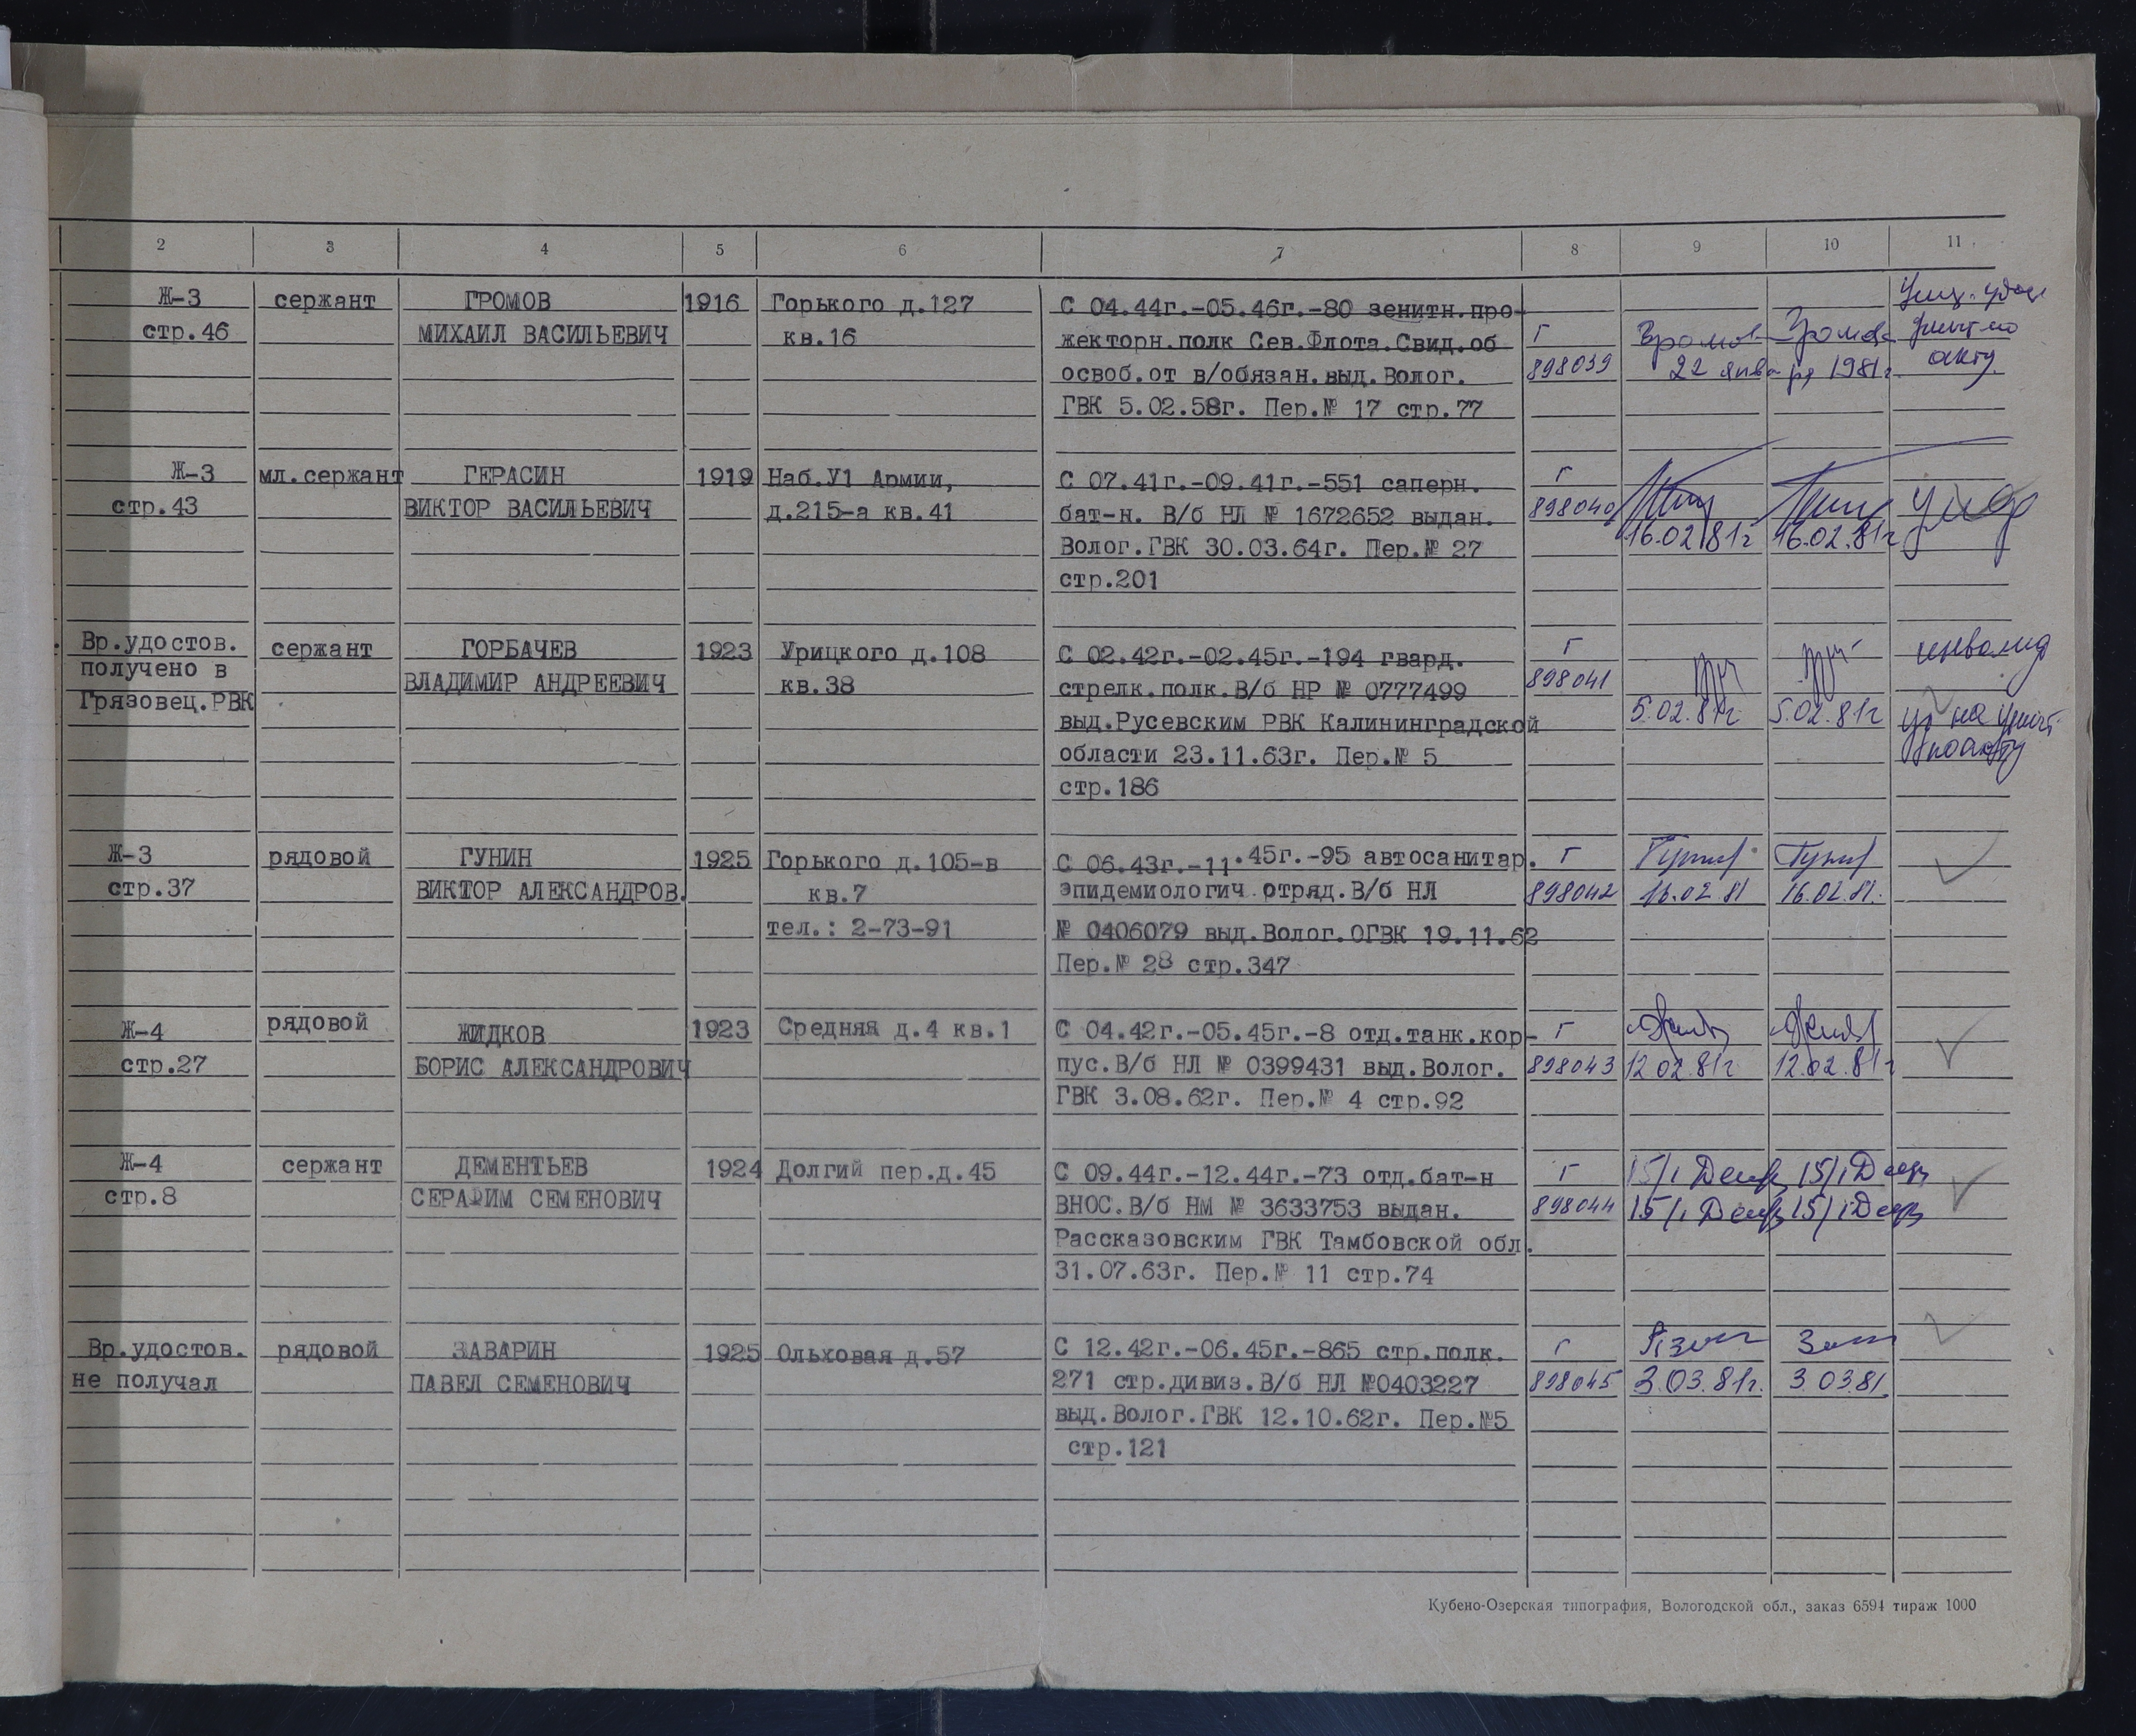 2 3 4 5 6 7 8 9 10 11
Ж-3 сержант ГРОМОВ 1916 Горького д.127 С 04.44г.-05.46г.-80 зенитн.про-
стр.46 МИХАИЛ ВАСИЛЬЕВИЧ кв.16 жекторн.полк Сев.Флота.Свид.об Г
освоб.от в/обязан.выд.Волог. 898039 22 января 1981г. акту.
ГВК 5.02.58г. Пер.№ 17 стр.77
Ж-3 мл.сержант ГЕРАСИН 1919 Наб.У1 Армии, С 07.41г.-09.41г.-551 саперн. Г
стр.43 ВИКТОР ВАСИЛЬЕВИЧ д.215-а кв.41 бат-н. В/б НЛ № 1672652 выдан. 898040
Волог.ГВК 30.03.64г. Пер.№ 27 16.02.81г 16.02.81г
стр.201
Вр.удостов. сержант ГОРБАЧЕВ 1923 Урицкого д.108 С 02.42г.-02.45г.-194 гвард. Г инвалид
получено в ВЛАДИМИР АНДРЕЕВИЧ кв.38 стрелк.полк.В/б НР № 0777499 898041
Грязовец.РВК выд.Русевским РВК Калининградской 5.02.81г 5.02.81г
области 23.11.63г. Пер.№ 5 по акту
стр.186
Ж-3 рядовой ГУНИН 1925 Горького д.105-в С 06.43г.-11.45г.-95 автосанитар. Г
стр.37 ВИКТОР АЛЕКСАНДРОВ. кв.7 эпидемиологич.отряд.В/б НЛ 898042 16.02 81 16.02.81.
тел.: 2-73-91 № 0406079 выд.Волог.ОГВК 19.11.62
Пер.№ 28 стр.347
Ж-4 рядовой ЖИДКОВ 1923 Средняя д.4 кв.1 С 04.42г.-05.45г.-8 отд.танк.кор- Г
стр.27 БОРИС АЛЕКСАНДРОВИЧ пус.В/б НЛ № 0399431 выд.Волог. 898043 12 02.81г 12.02.81г
ГВК 3.08.62г. Пер.№ 4 стр.92
Ж-4 сержант ДЕМЕНТЬЕВ 1924 Долгий пер.д.45 С 09.44г.-12.44г.-73 отд.бат-н Г 15/1 15/1
стр.8 СЕРАФИМ СЕМЕНОВИЧ ВНОС.В/б НМ № 3633753 выдан. 898044 15/1 15/1
Рассказовским ГВК Тамбовской обл.
31.07.63г. Пер.№ 11 стр.74
Вр.удостов. рядовой ЗАВАРИН 1925 Ольховая д.57 С 12.42г.-06.45г.-865 стр.полк. Г
не получал ПАВЕЛ СЕМЕНОВИЧ 271 стр.дивиз.В/б НЛ №0403227 898045 3.03.81г. 3.03.81.
выд.Волог.ГВК 12.10.62г. Пер.№5
стр.121
Кубено-Озерская типография, Вологодской обл., заказ 6594 тираж 1000